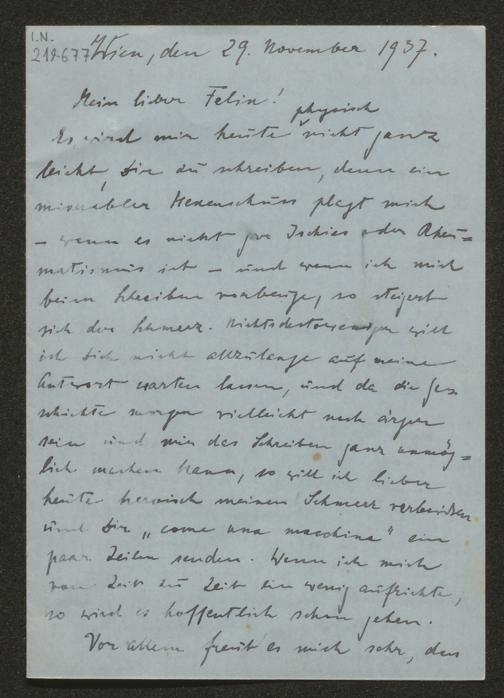 I.N.
219.677
Wien, den 29. November 1937.
Mein lieber Felix!
physisch
Es wird mir heute nicht ganz
leicht, Dir zu schreiben, denn ein
miserabler Hexenschuss plagt mich
– wenn es nicht gar Ischias oder Rheu=
matismus ist – und wenn ich mich
beim Schreiben vorbeuge, so steigert
sich der Schmerz. Nichtsdestoweniger will
ich Dich nicht allzulange auf meine
Antwort warten lassen, und da die Ge=
schichte morgen vielleicht noch ärger
sein und mir das Schreiben ganz unmög=
lich machen kann, so will ich lieber
heute heroisch meinen Schmerz verbeissen
und Dir „come una macchina" ein
paar Zeilen senden. Wenn ich mich
von Zeit zu Zeit ein wenig aufrichte,
so wird es hoffentlich schon gehen.
Vor allem freut es mich sehr, dass